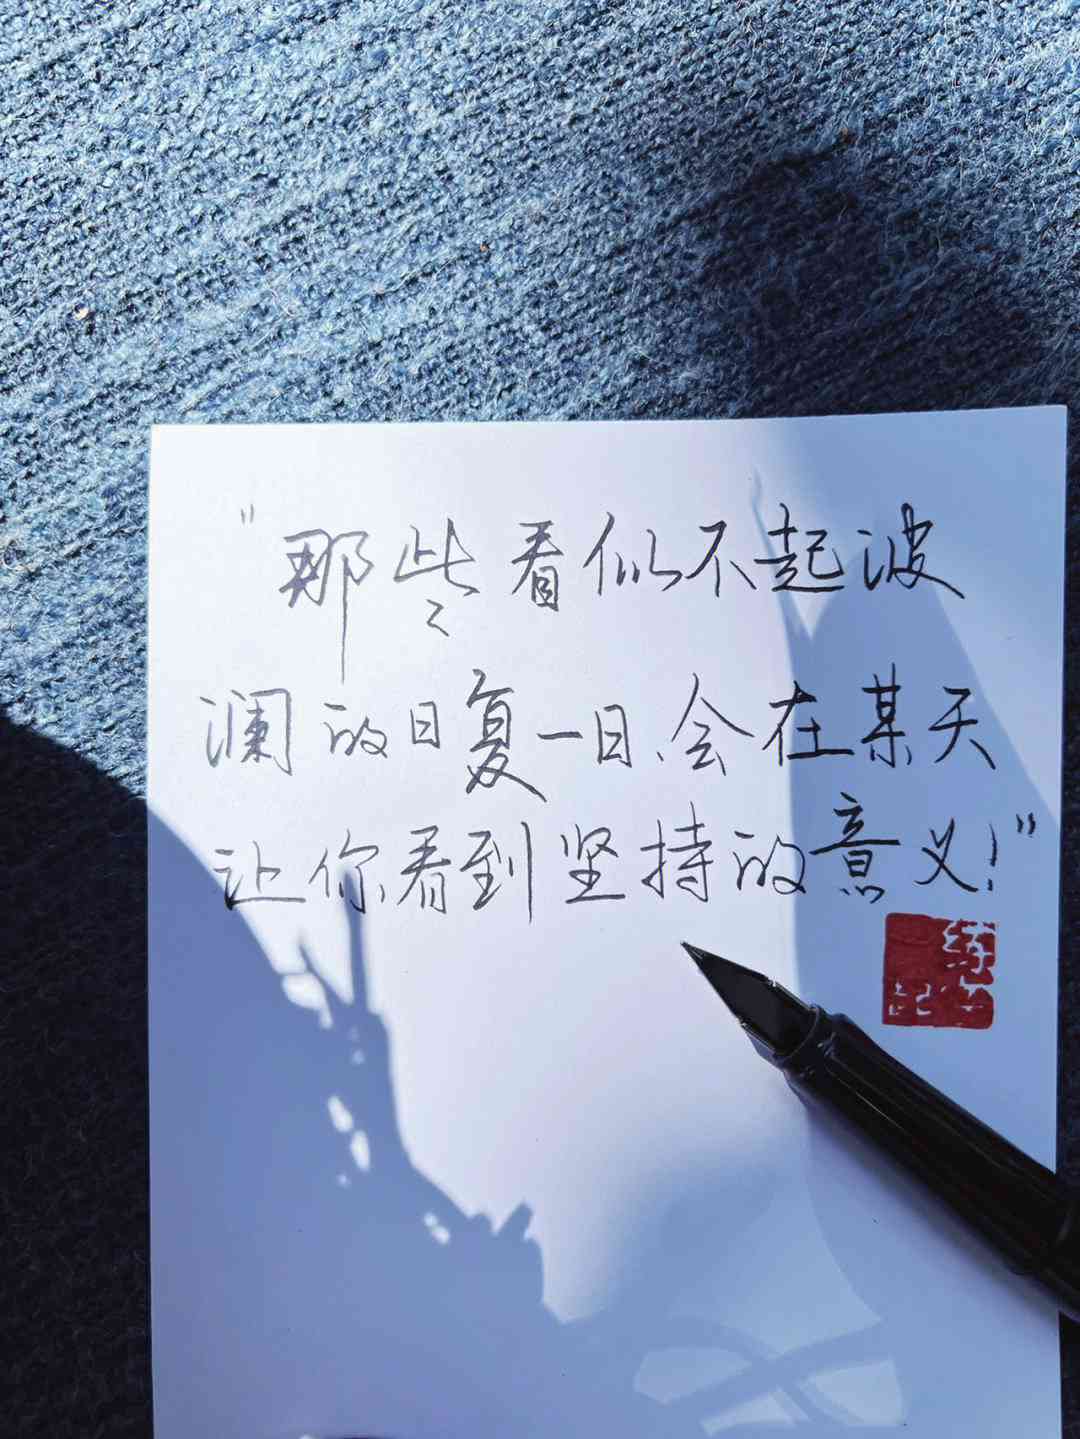 "那些看似不起波
澜的日复一日、会在某天
让你看到坚持的意义！"